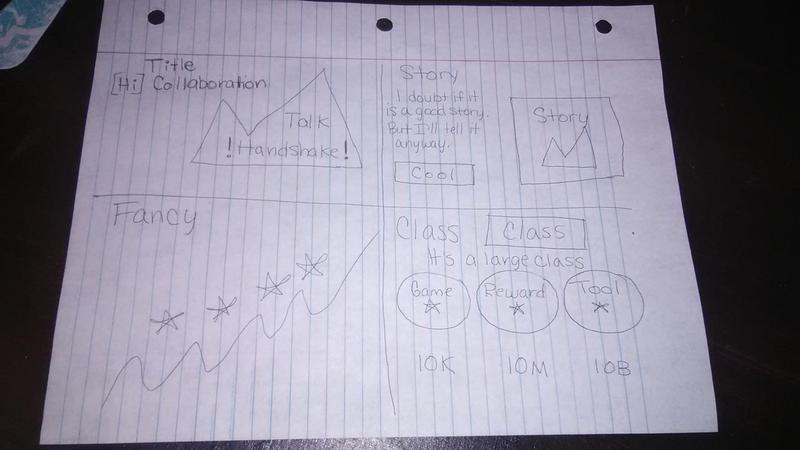 Title
[Hi] Collaboration
Talk
!Handshake!
Story
I doubt if it
is a good story.
But I'll tell it
anyway.
Cool
Story
Fancy
Class
Class
It's a large class
Game
Reward
Tool
10K
10M
10B